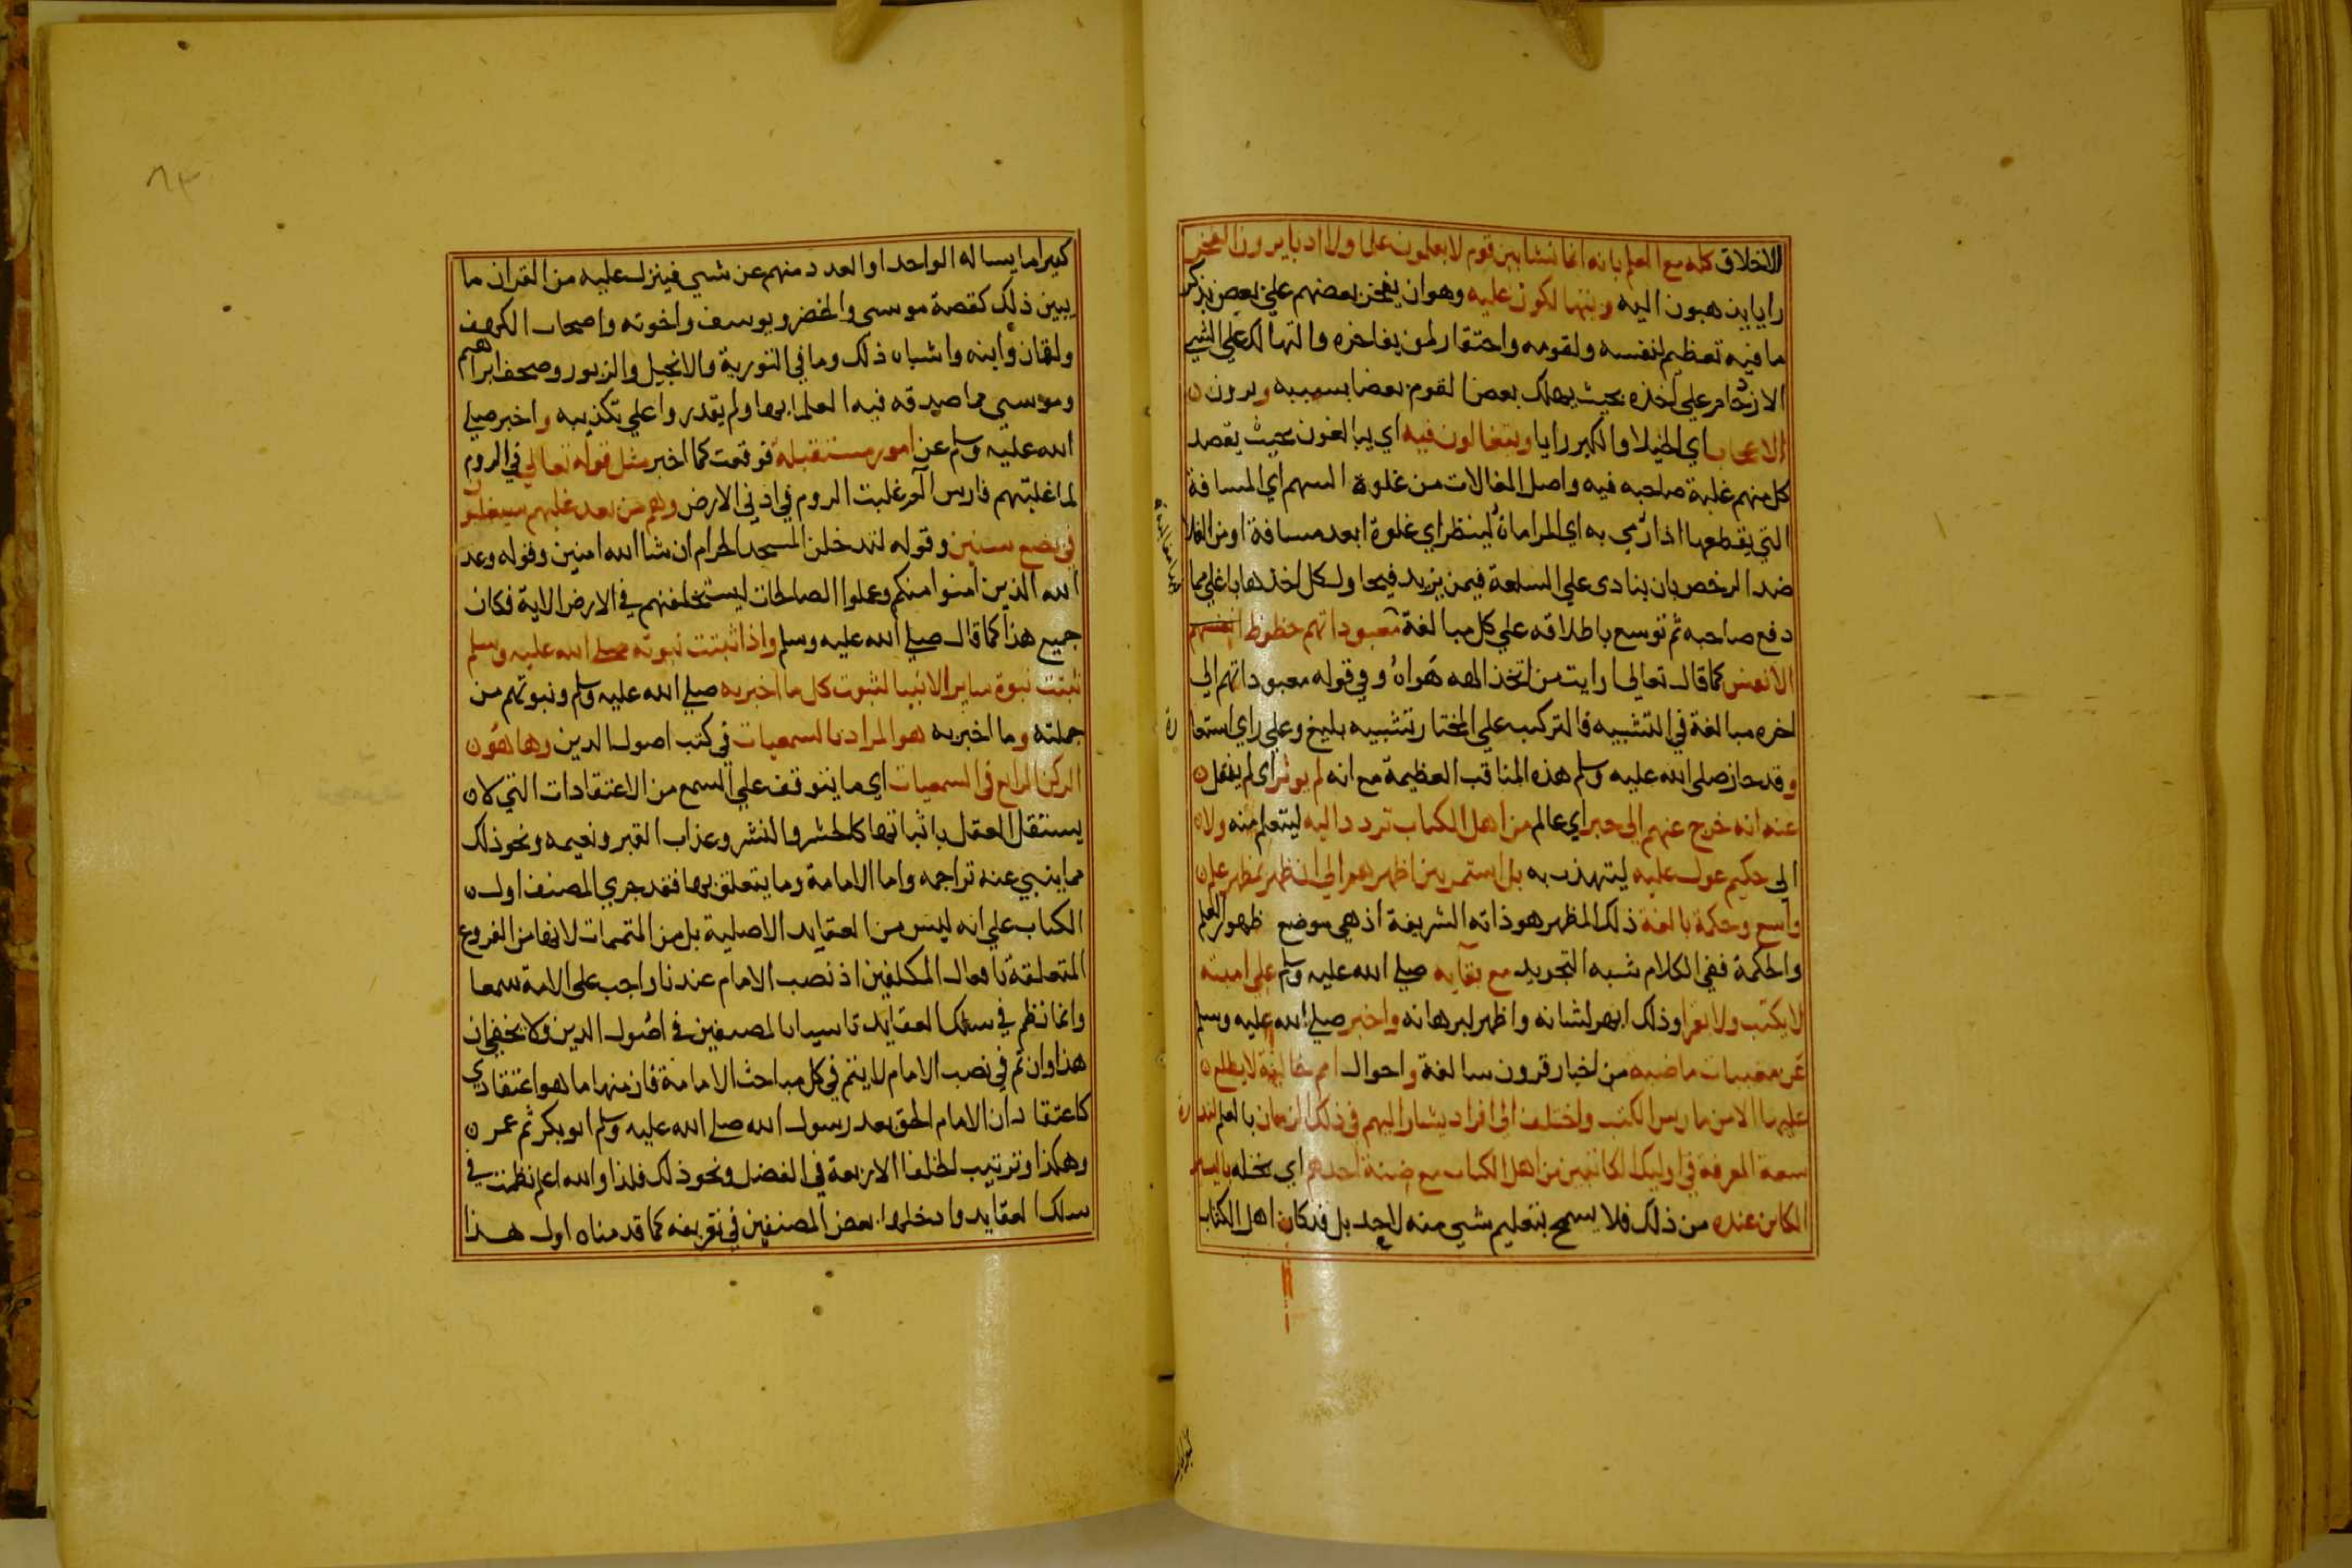 الاخلاق كله مع العلم بانه انما نشا بين قوم لا يعلمون علما ولا ادبا يرون الفخر
رايا يذهبون اليه ويتهالكون عليه وهو ان يفخر بعضهم علي بعض بذكر
ما فيه تعظيم لنفسه ولقومه واحتقار لمن يفاخره والتهالك علي الشي
الازدحام علي اخذه بحيث يهلك بعض القوم بعضا بسببه ويرون
الاعجاب اي الخيلا والكبر رايا ويتغالون فيه اي يبالغون بحيث يقصد
كل منهم غلبة صاحبه فيه واصل المغالات من غلوة السهم اي المسافة
التي يقطعها اذا رمي به اي المراماة لينظر اي غلوة ابعد مسافة او من الغلا
ضد الرخص بان ينادى علي السلعة فيمن يزيد فيحاول كل اخذها باغلي مما
دفع صاحبه ثم توسع باطلاقه علي كل مبالغة معبوداتهم حظوظ انفسهم
الانفس كما قال تعالي ارايت من اتخذ الهه هواه وفي قوله معبوداتهم الي
اخره مبالغة في التشبيه فالتركيب علي المختار تشبيه بليغ وعلي راي استعا
رة
وقد حاز صلي الله عليه وسلم هذه المناقب العظيمة مع انه لم يوثر اي لم ينقل
عنه انه خرج عنهم الي حبر اي عالم من اهل الكتاب تردد اليه ليتعلم منه ولا
الي حكيم عول عليه ليتهذب به بل استمر بين اظهرهم الي ان ظهر بمظهر علم
واسع وحكمة بالغة ذلك المظهر هو ذاته الشريفة اذ هي موضع ظهور العلم
والحكمة ففي الكلام شبه التجريد مع بقايه صلي الله عليه وسلم علي اميته
لا يكتب ولا يقرا وذلك ابهر لشانه واظهر لبرهانه واخبر صلي الله عليه وسلم
عن مغيبات ماضية من اخبار قرون سالفة واحوال امم خالية لا يطلع
عليها الا من مارس الكتب واختلف الي افراد يشار اليهم في ذلك الزمان بالعلم لند
رة
سعة المعرفة في اوليك الكائنين من اهل الكتاب مع ضنة احدهم اي بخله باليسير
الكاين عنده من ذلك فلا يسمح بتعليم شي منه لاحد بل قد كان اهل الكتاب
كثيرا ما يساله الواحد او العدد منهم عن شي فينزل عليه من القران ما
يبين ذلك كقصة موسي والخضر ويوسف واخوته واصحاب الكهف
ولقمان وابنه واشباه ذلك وما في التورية والانجيل والزبور وصحف ابراهيم
وموسي مما صدقه فيه العلما بها ولم يقدروا علي تكذيبه واخبر صلي
الله عليه وسلم عن امور مستقبلة فوقعت كما اخبر مثل قوله تعالي في الروم
لما غلبتهم فارس الم غلبت الروم في ادني الارض وهم من بعد غلبهم سيغلبون
في بضع سنين وقوله لتدخلن المسجد الحرام ان شا الله امنين وقوله وعد
الله الذين امنوا منكم وعملوا الصالحات ليستخلفنهم في الارض الاية فكان
جميع هذا كما قال صلي الله عليه وسلم واذا ثبتت نبوته صلي الله عليه وسلم
ثبتت نبوة ساير الانبيا لثبوت كل ما اخبر به صلي الله عليه وسلم ونبوتهم من
جملته وما اخبر به هو المراد بالسمعيات في كتب اصول الدين وها هو
الركن الرابع في السمعيات اي ما يتوقف علي السمع من الاعتقادات التي لا
يستقل العقل باثباتها كالحشر والنشر وعذاب القبر ونعيمه ونحو ذلك
مما ينبي عنه تراجمه واما الامامة وما يتعلق بها فقد جري المصنف اول
الكتاب علي انه ليس من العقايد الاصلية بل من المتممات لانها من الفروع
المتعلقة بافعال المكلفين اذ نصب الامام عندنا واجب علي الامة سمعا
وانما نظم في سلك العقايد تاسيا بالمصنفين في اصول الدين ولا يخفي ان
هذا وان تم في نصب الامام لا يتم في كل مباحث الامامة فان منها ما هو اعتقادي
كاعتقاد ان الامام الحق بعد رسول الله صلي الله عليه وسلم ابو بكر ثم عمر
وهكذا وترتيب الخلفا الاربعة في الفضل ونحو ذلك فلذا والله اعلم نظمت في
سلك العقايد وادخلها بعض المصنفين في تعريفه كما قدمناه اول هذا